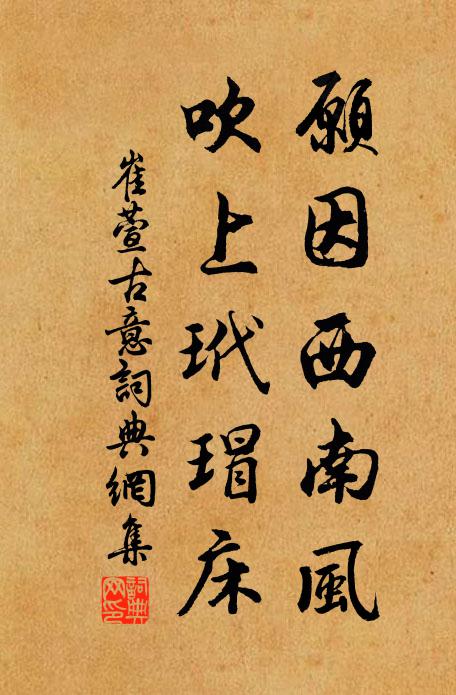 願因西南風
吹上玳瑁床
崔萱古意詞典網集
詞典
网印